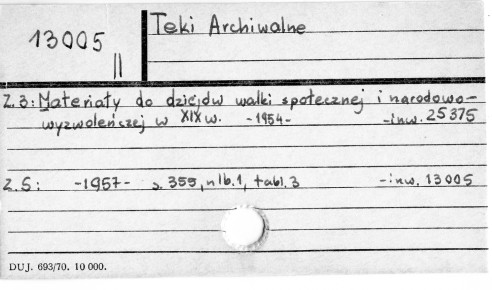 13005
II
Teki Archiwalne
Z. 3: Materiały do dziejów walki społecznej i narodowo-
wyzwoleńczej w XIX w. -1954- -inw. 25375
Z. 5: -1957- s. 355, nlb. 1, tabl. 3 -inw. 13005
DUJ. 693/70. 10 000.